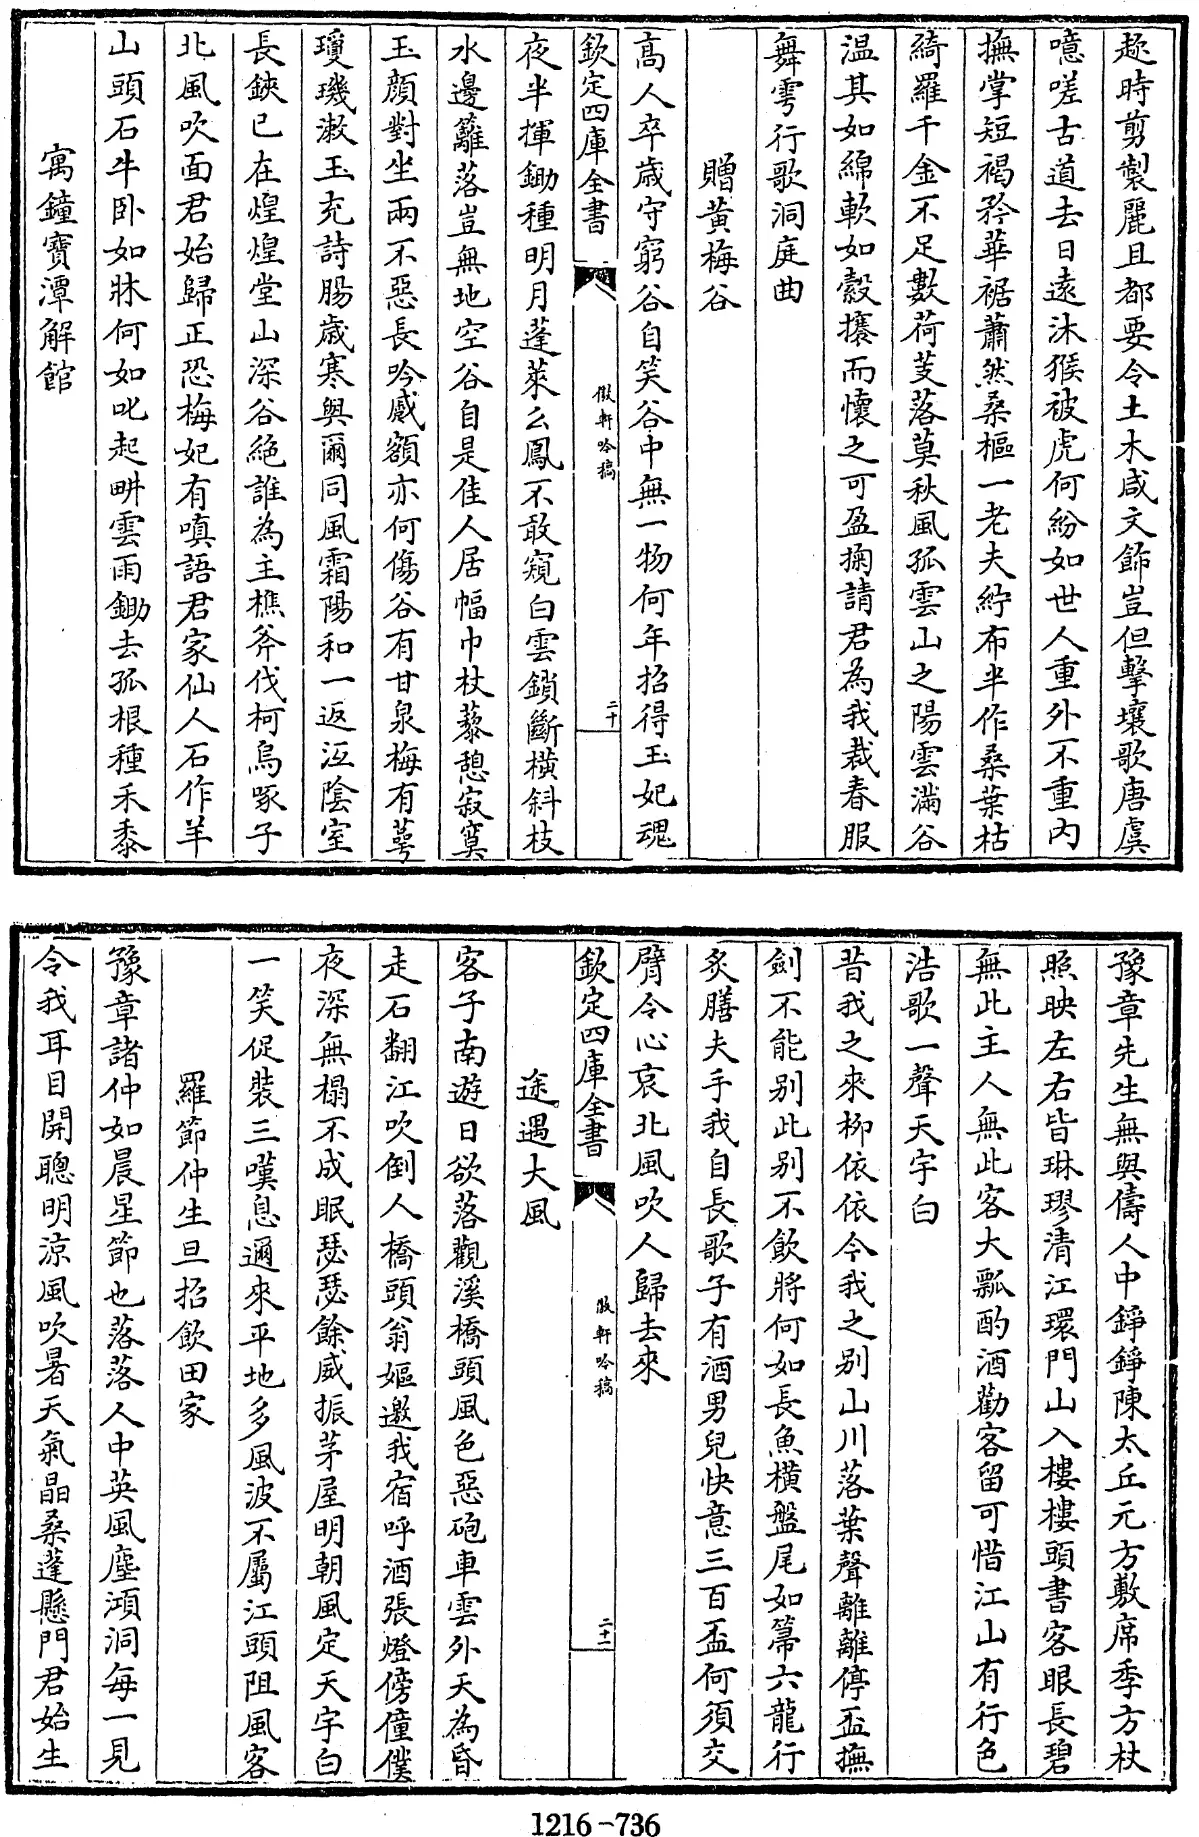 趂時剪製麗且都要令土木咸文飾豈但擊壤歌唐虞
噫嗟古道去日遠沐猴被虎何紛如世人重外不重内
撫掌短褐矜華裾蕭然桑樞一老夫紵布半作桑葉枯
綺羅千金不足數荷芰落莫秋風孤雲山之陽雲滿谷
温其如綿軟如縠攘而懷之可盈掬請君為我裁春服
舞雩行歌洞庭曲
贈黃梅谷
高人卒歳守窮谷自笑谷中無一物何年招得玉妃魂
欽定四庫全書
儆軒吟稿
二十
夜半揮鋤種明月蓬萊么鳳不敢窺白雲鎖斷橫斜枝
水邊籬落豈無地空谷自是佳人居幅巾杖藜憩寂寞
玉顔對坐兩不惡長吟感額亦何傷谷有甘泉梅有萼
瓊璣漱玉充詩腸歳寒與爾同風霜陽和一返沍陰室
長鋏已在煌煌堂山深谷絶誰為主樵斧伐柯鳥啄子
北風吹面君始歸正恐梅妃有嗔語君家仙人石作羊
山頭石牛卧如牀何如叱起畊雲雨鋤去孤根種禾黍
寓鐘寳潭解館
豫章先生無與儔人中錚錚陳太丘元方敷席季方杖
照映左右皆琳璆清江環門山入樓樓頭書客眼長碧
無此主人無此客大瓢酌酒勸客留可惜江山有行色
浩歌一聲天宇白
昔我之來栁依依今我之别山川落葉聲離離停盃撫
劍不能别此别不飲將何如長魚橫盤尾如箒六龍行
炙膳夫手我自長歌子有酒男兒快意三百盃何須交
臂令心哀北風吹人歸去來
欽定四庫全書
儆軒吟稿
二十一
途遇大風
客子南遊日欲落觀溪橋頭風色惡砲車雲外天為昏
走石翻江吹倒人橋頭翁嫗邀我宿呼酒張燈傍僮僕
夜深無榻不成眠瑟瑟餘威振茅屋明朝風定天宇白
一笑促裝三嘆息邇來平地多風波不屬江頭阻風客
羅節仲生旦招飲田家
豫章諸仲如晨星節也落落人中英風塵澒洞每一見
令我耳目開聰明涼風吹暑天氣晶桑蓬懸門君始生
1216-736